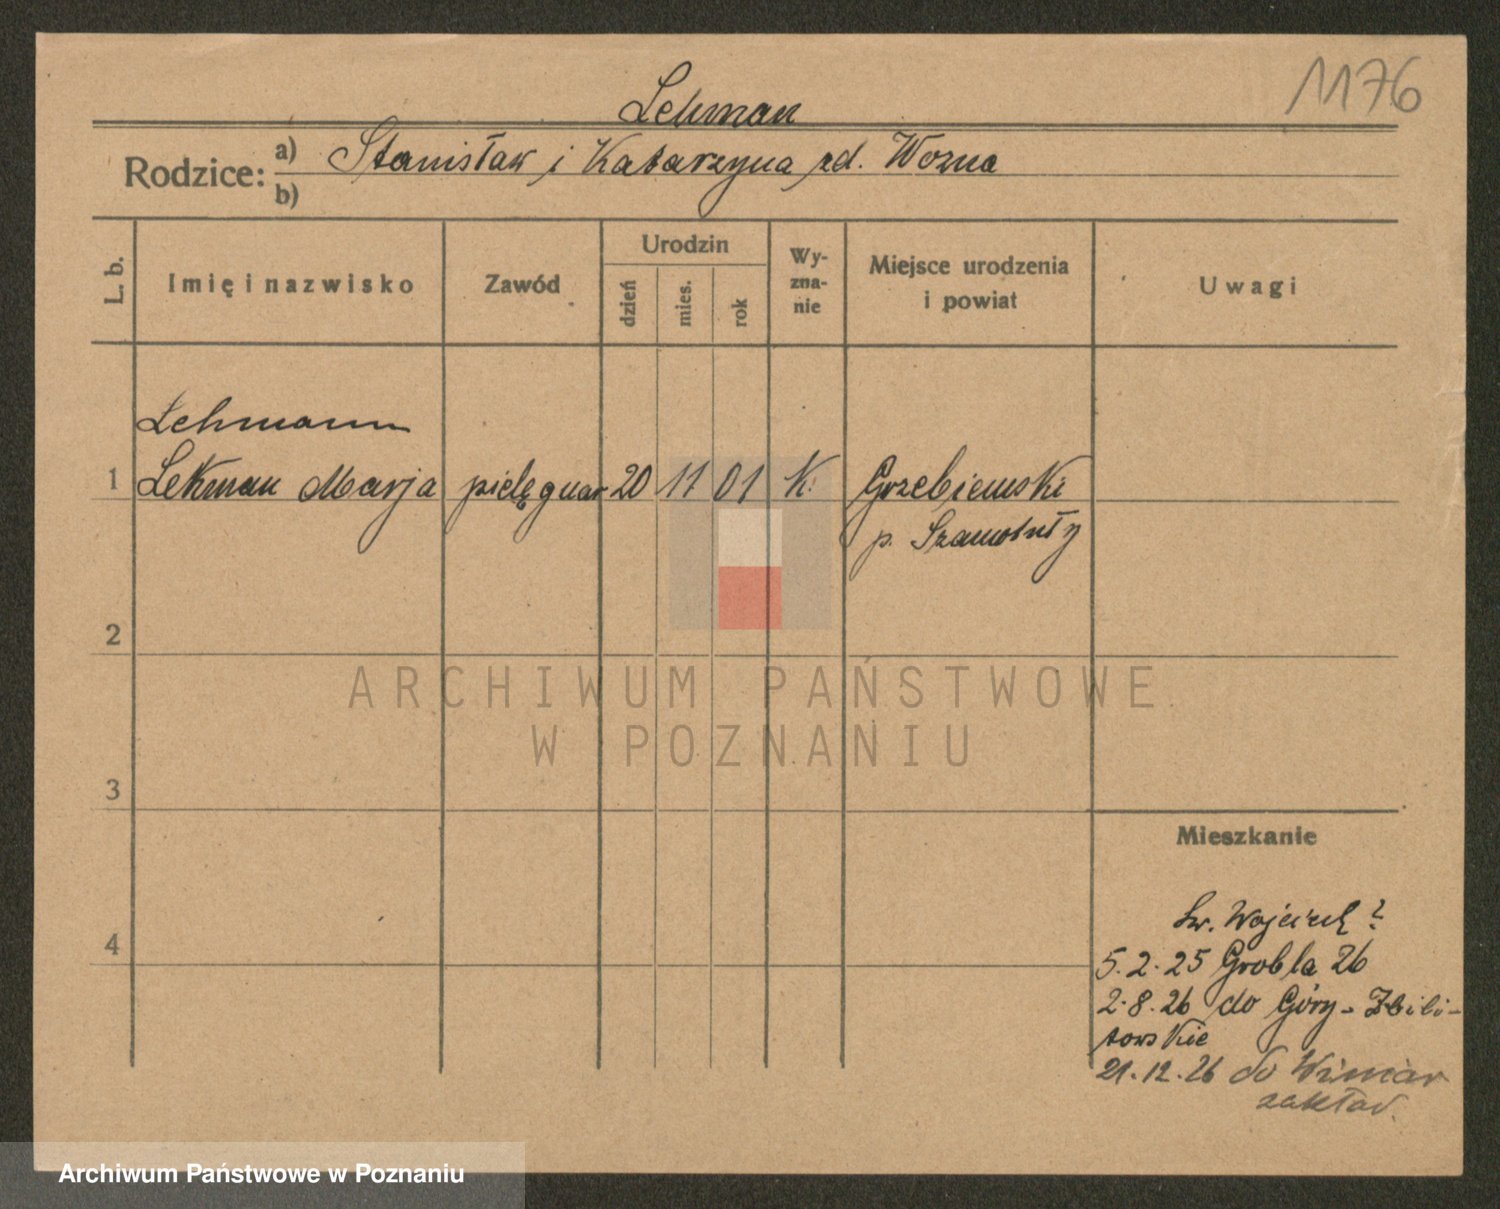 1176
Lehman
Rodzice: a) Stanisław i Katarzyna zd. Wozna
b)
L. b.
Imię i nazwisko
Zawód
Urodzin
dzień
mies.
rok
Wy-
zna-
nie
Miejsce urodzenia
i powiat
Uwagi
Lehmann
1 Lekman Marja pielęgniar 20 11 01 K. Grzebienski
p. Szamotuły
2
ARCHIWUM PAŃSTWOWE
W POZNANIU
3
Mieszkanie
4
Św. Wojciech ?
5.2.25 Grobla 26
2.8.26 do Góry-Zbili-
towskie
21.12.26 do Wimar
zakład.
Archiwum Państwowe w Poznaniu